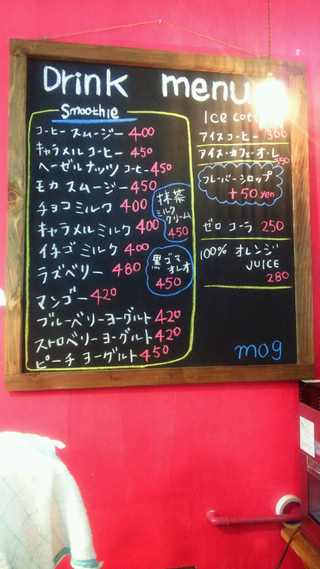 Drink menu
Smoothie
コーヒー スムージー 400
キャラメル コーヒー 450
ヘーゼルナッツ コーヒー 450
モカ スムージー 450
チョコ ミルク 400
キャラメル ミルク 400
イチゴ ミルク 400
ラズベリー 480
マンゴー 420
ブルーベリーヨーグルト 420
ストロベリーヨーグルト 420
ピーチ ヨーグルト 450
抹茶
ミルク
クリーム
450
黒ゴマ
オレオ
450
Ice coffee
アイスコーヒー 300
アイス・カフェ・オ・レ
350
フレーバーシロップ
+50yen
ゼロ コーラ 250
100% オレンジ
JUICE
280
mog